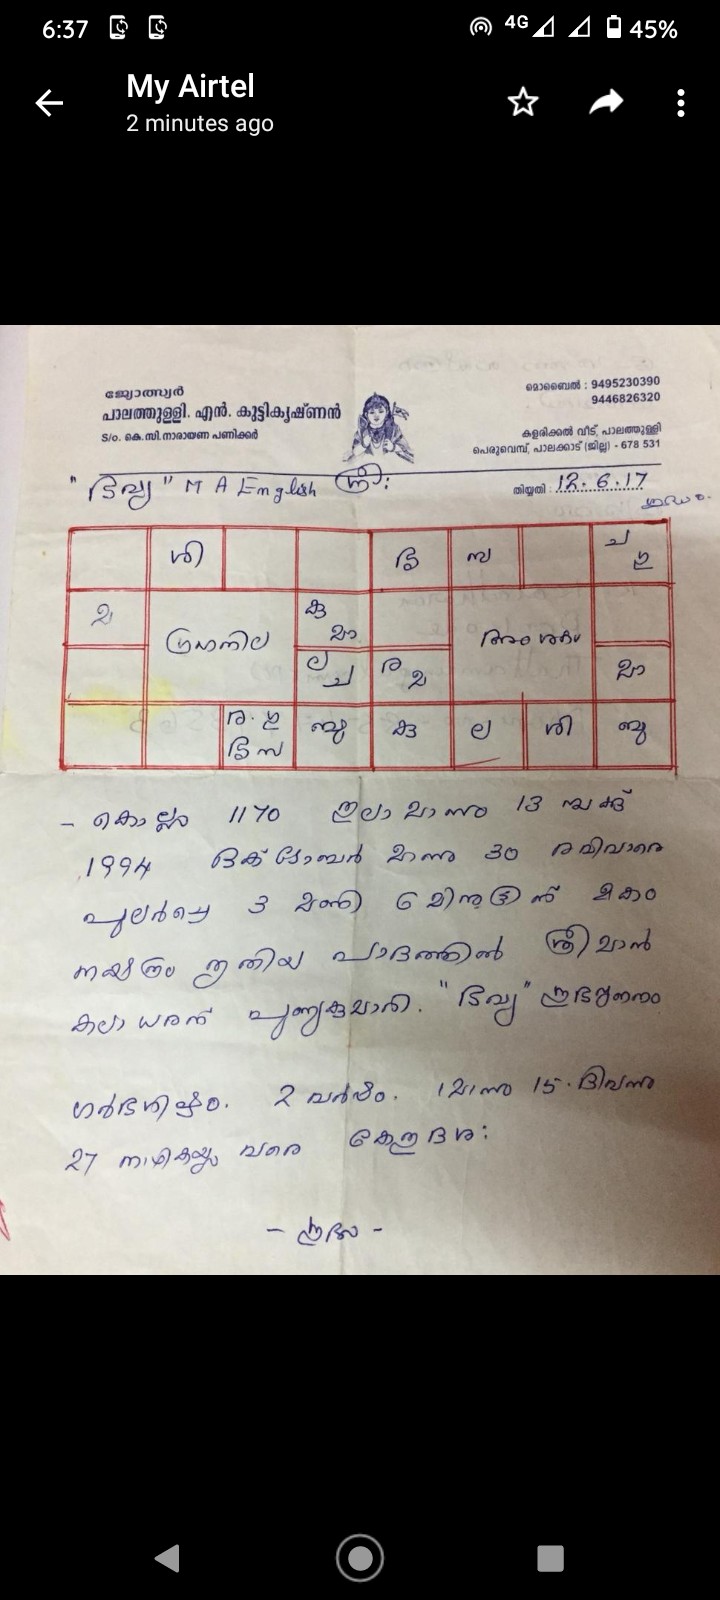 6:37 4G 45%
My Airtel
2 minutes ago
ജ്യോത്സ്യർ
പാലത്തുള്ളി. എൻ. കുട്ടികൃഷ്ണൻ
S/o. കെ.സി.നാരായണ പണിക്കർ
മൊബൈൽ : 9495230390
9446826320
കളരിക്കൽ വീട്, പാലത്തുള്ളി
പെരുവെമ്പ്, പാലക്കാട് (ജില്ല) - 678 531
"ദിവ്യ" M A English ശ്രീ:
തിയ്യതി : 12.6.17
ശി
സ
ച
ഗു
കു
മാ
ഗ്രഹനില
അംശകം
ല
ച
ര
മാ
ര. ഗു
സ
ബു
കു
ല
ശി
ബു
- കൊല്ലം 1170 തുലാ മാസം 13
1994 ഒക്ടോബർ മാസം 30 രവിവാരെ
പുലർച്ചെ 3 മണി 6 മിനുട്ടിന് മകം
നക്ഷത്രം തൃതിയ പാദത്തിൽ ശ്രീമാൻ
കലാധരന് പുണ്യകുമാരി. "ദിവ്യ"
ഗർഭശിഷ്ടം. 2 വർഷം. 1 മാസം 15. ദിവസം
27 നാഴികയും വരെ കേതു ദശ:
- ശുഭം -